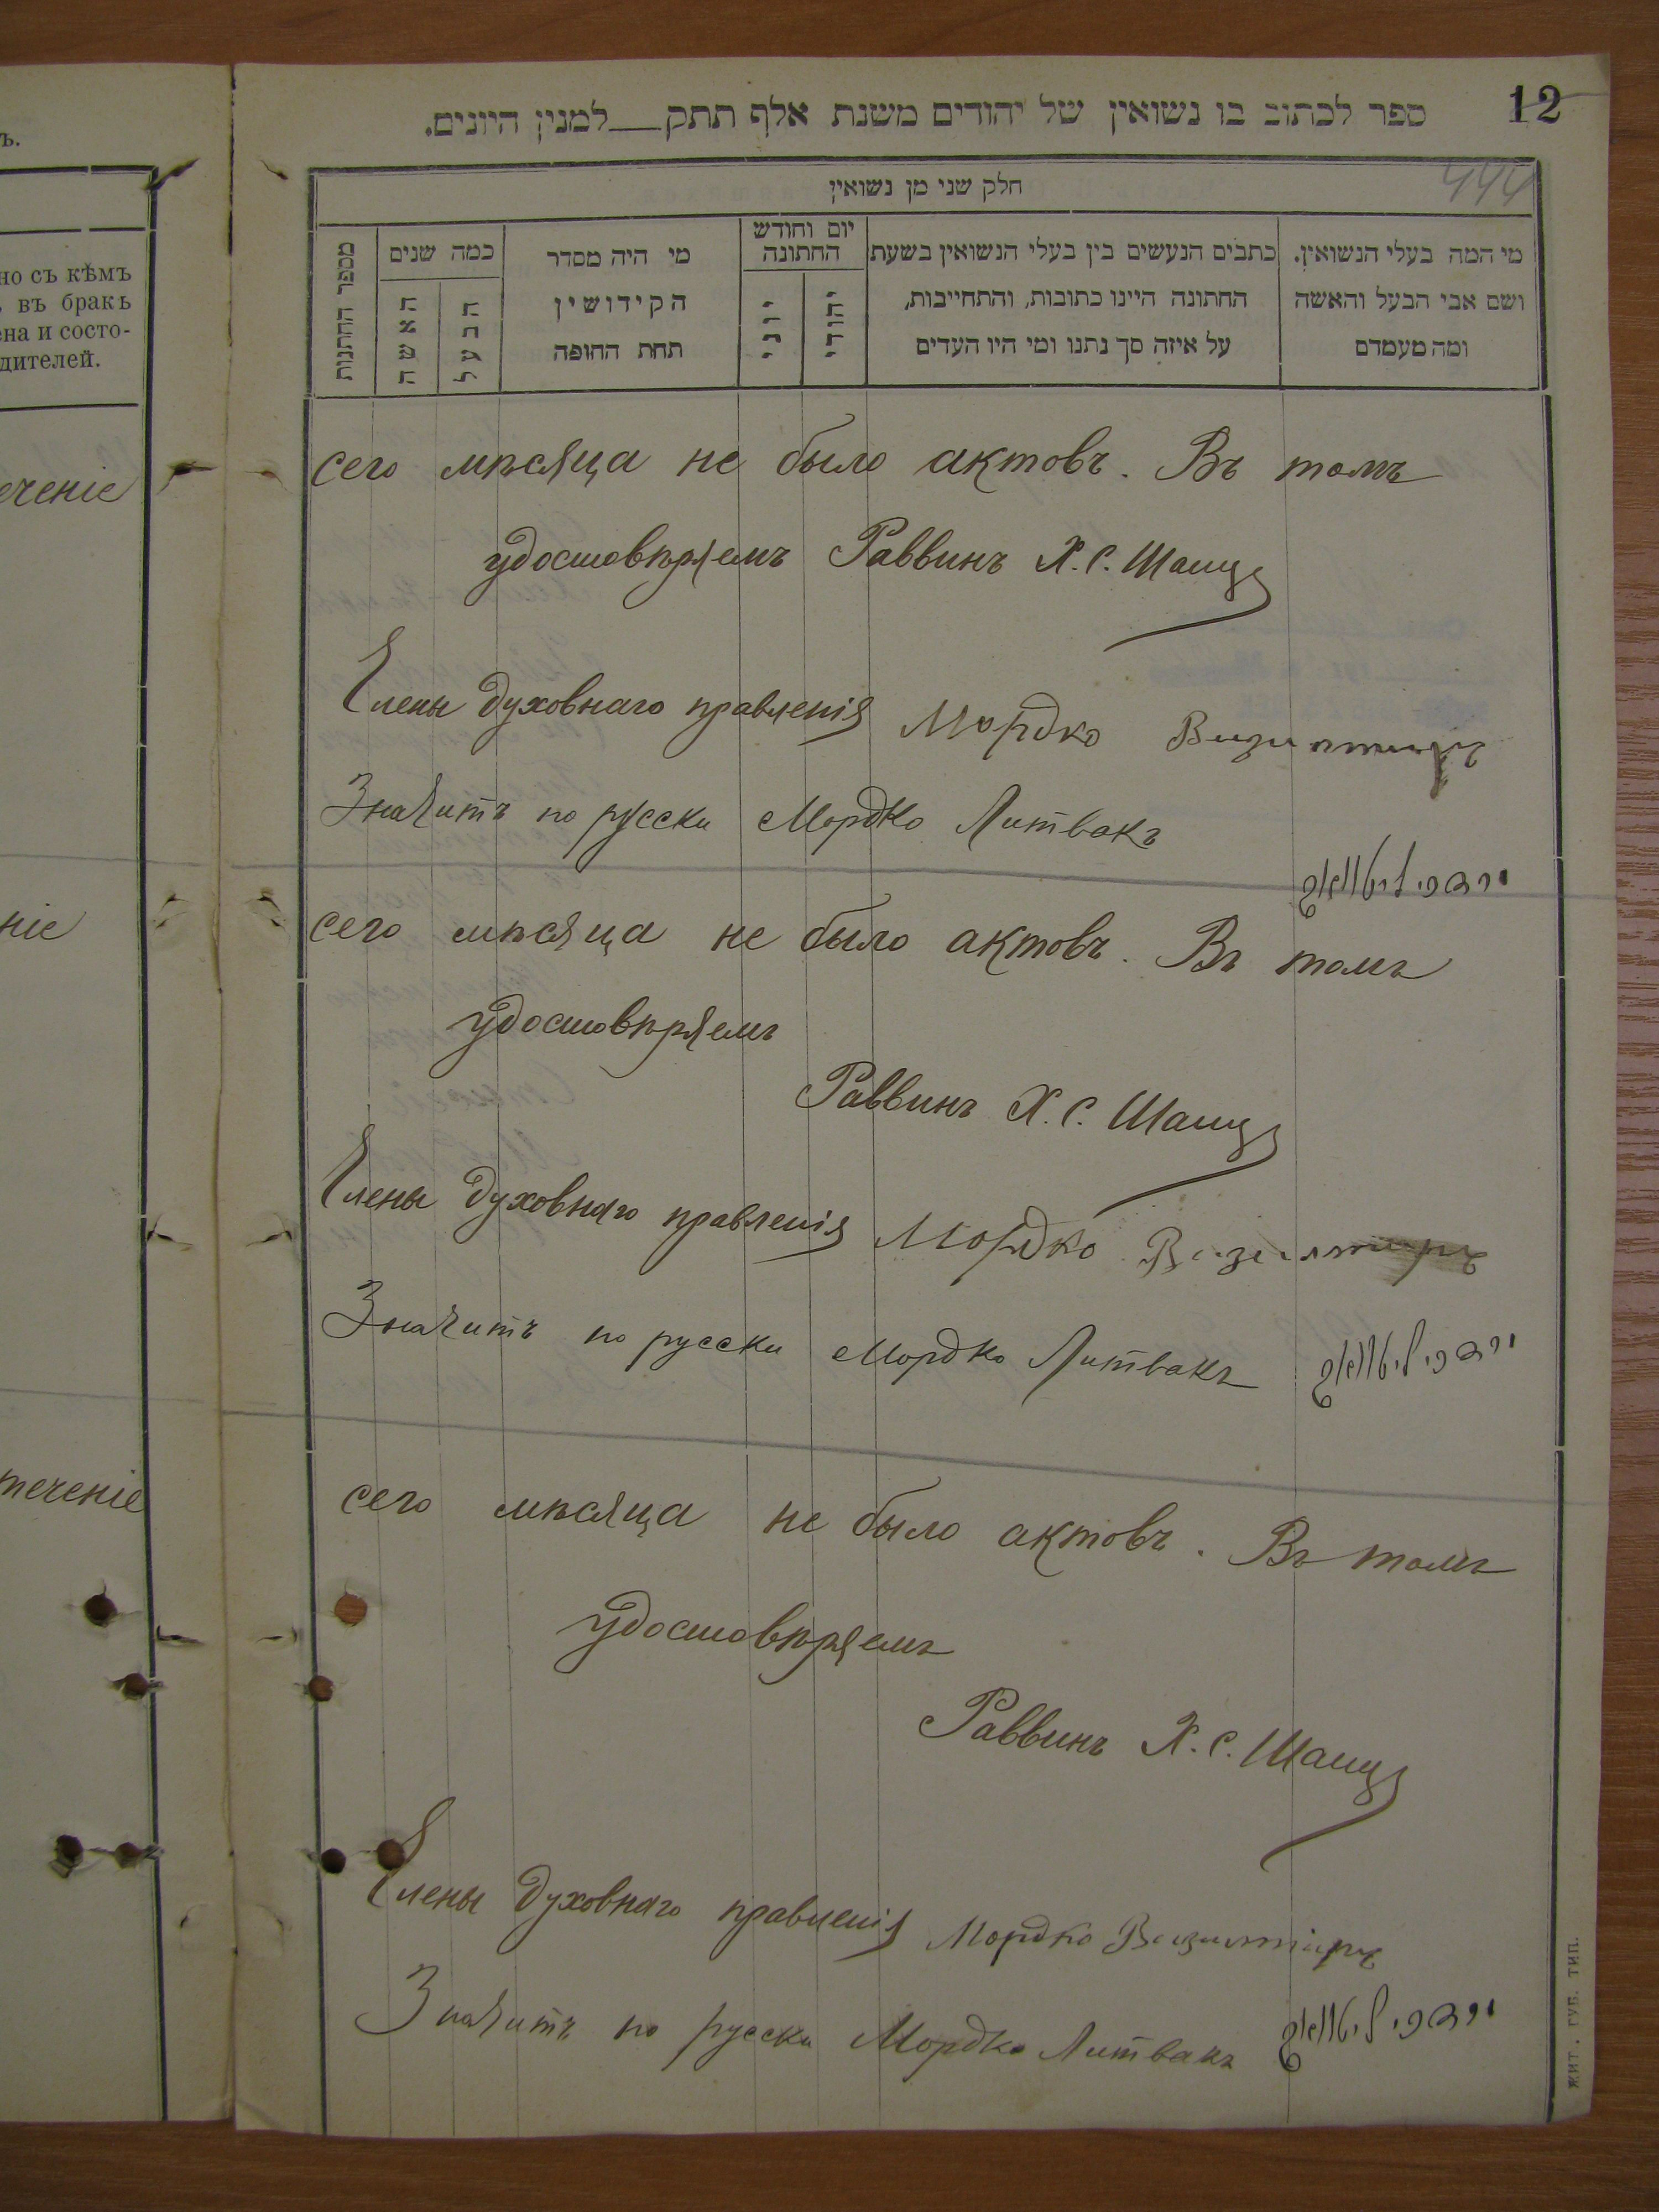 ъ.
но съ кѣмъ
въ бракъ
ена и состо-
дителей.
еченіе
ніе
теченіе
12
ספר לכתוב בו נשואין של יהודים משנת אלף תתק__למנין היונים.
444
חלק שני מן נשואין
מי המה בעלי הנשואין.
ושם אבי הבעל והאשה
ומה מעמדם
כתבים הנעשים בין בעלי הנשואין בשעת
החתונה היינו כתובות, והתחייבות,
על איזה סך נתנו ומי היו העדים
יום וחודש
החתונה
יהודי
יוני
מי היה מסדר
הקידושין
תחת החופה
כמה שנים
הבעל
האשה
מספר החתונות
сего мѣсяца не было актовъ. Въ томъ
удостовѣряемъ Раввинъ Х. С. Шацъ
Члены духовнаго правленія Мордко
Значитъ по русски Мордко Литвакъ
ליטוואק
сего мѣсяца не было актовъ. Въ томъ
удостовѣряемъ
Раввинъ Х. С. Шацъ
Члены духовнаго правленія Мордко
Значитъ по русски Мордко Литвакъ ליטוואק
сего мѣсяца не было актовъ. Въ томъ
удостовѣряемъ
Раввинъ Х. С. Шацъ
Члены духовнаго правленія Мордко
Значитъ по русски Мордко Литвакъ ליטוואק
ЖИТ. ГУБ. ТИП.